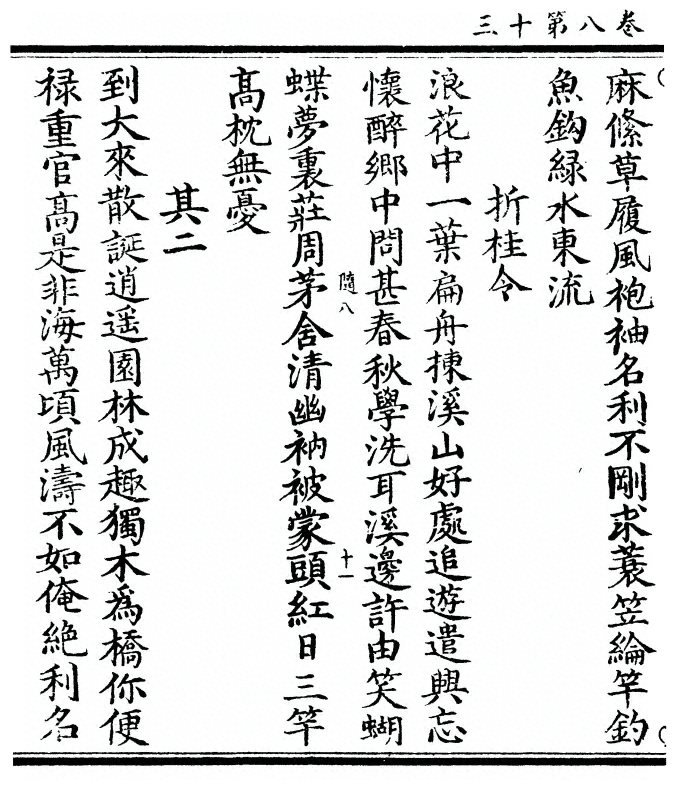 卷八第十三
麻絛草履風袍袖名利不剛求蓑笠綸竿釣
魚鈎緑水東流
折桂令
浪花中一葉扁舟揀溪山好處追遊遣興忘
懷醉鄉中問甚春秋學洗耳溪邊許由笑蝴
隨八
十一
蝶夢裏莊周茅舍清幽衲被蒙頭紅日三竿
髙枕無憂
其二
到大來散誕逍遥園林成趣獨木爲橋你便
禄重官髙是非海萬頃風濤不如俺絶利名